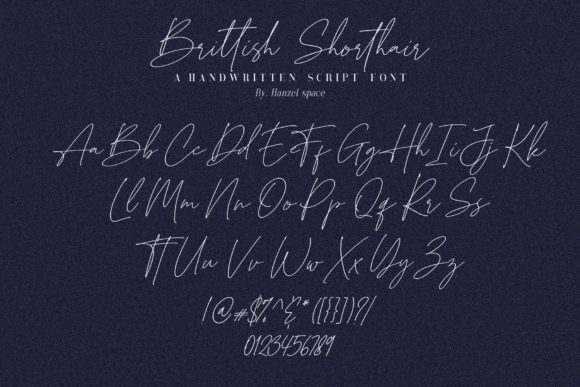 Brittish Shorthair
A HANDWRITTEN SCRIPT FONT
By. Hanzel space
Aa Bb Cc Dd Ee Ff Gg Hh Ii Jj Kk
Ll Mm Nn Oo Pp Qq Rr Ss
Tt Uu Vv Ww Xx Yy Zz
!@#$%^&*([{}])?/
0123456789